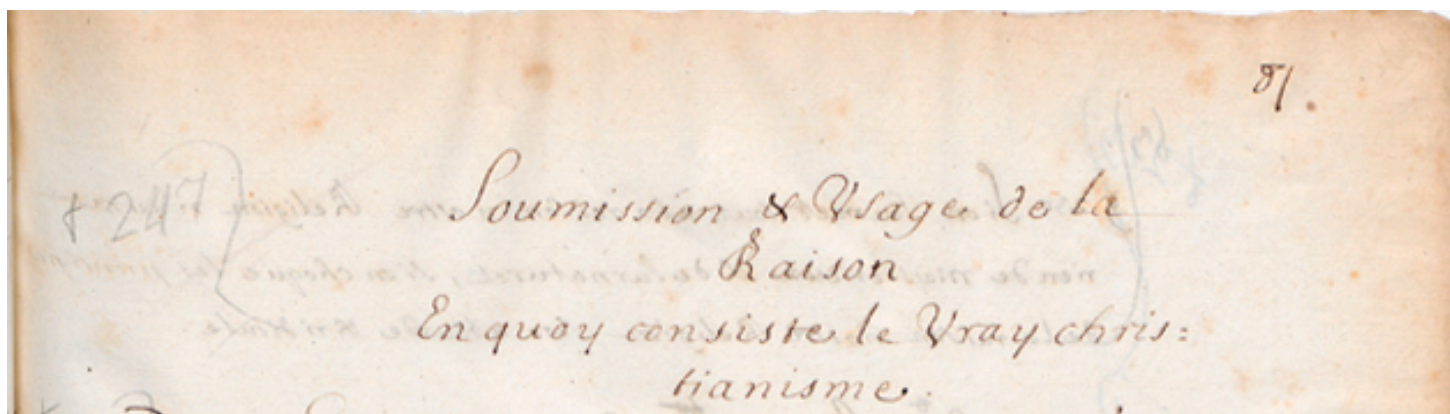 81.
Soumission & Vsage de la
+ 247
Raison
En quoy consiste le Vray chris=
tianisme.